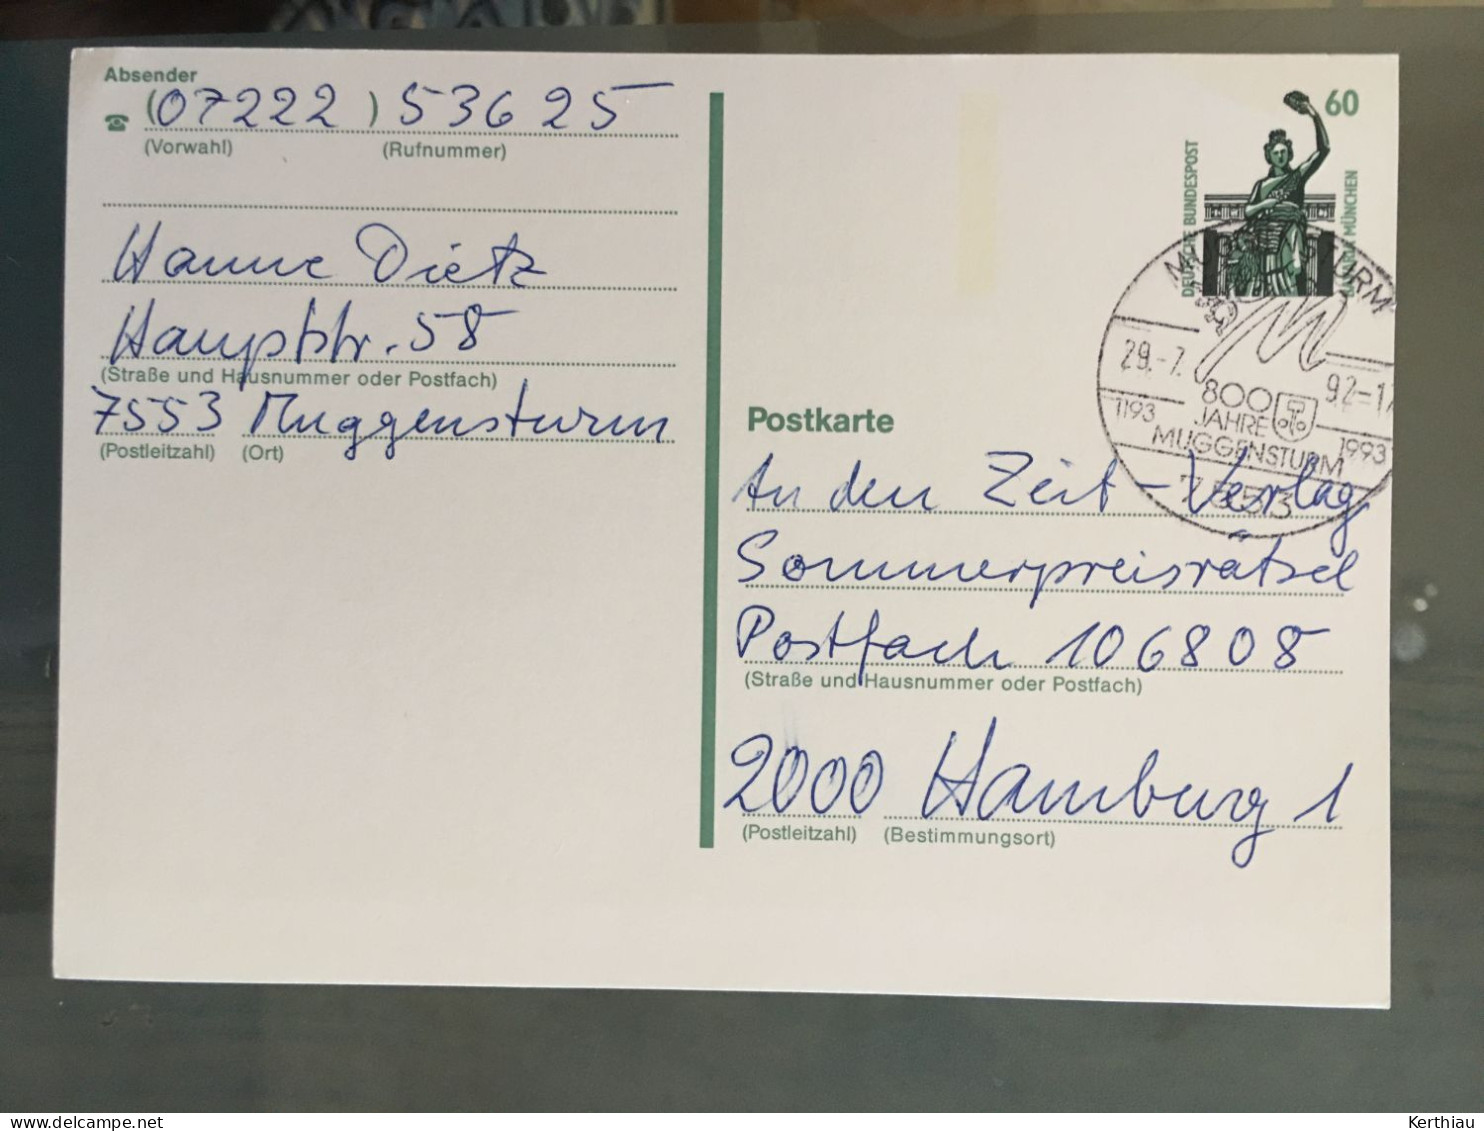 Absender
(07222) 53625
(Vorwahl) (Rufnummer)
Hanne Dietz
Hauptstr. 58
(Straße und Hausnummer oder Postfach)
7553 Muggensturm
(Postleitzahl) (Ort)
60
DEUTSCHE BUNDESPOST
MÜNCHEN
MUGGENSTURM
29.-7. 92-17
800
JAHRE
1193 1993
MUGGENSTURM
7553
Postkarte
An den Zeit-Verlag
Sommerpreisrätsel
Postfach 106808
(Straße und Hausnummer oder Postfach)
2000 Hamburg 1
(Postleitzahl) (Bestimmungsort)
Kerthiau